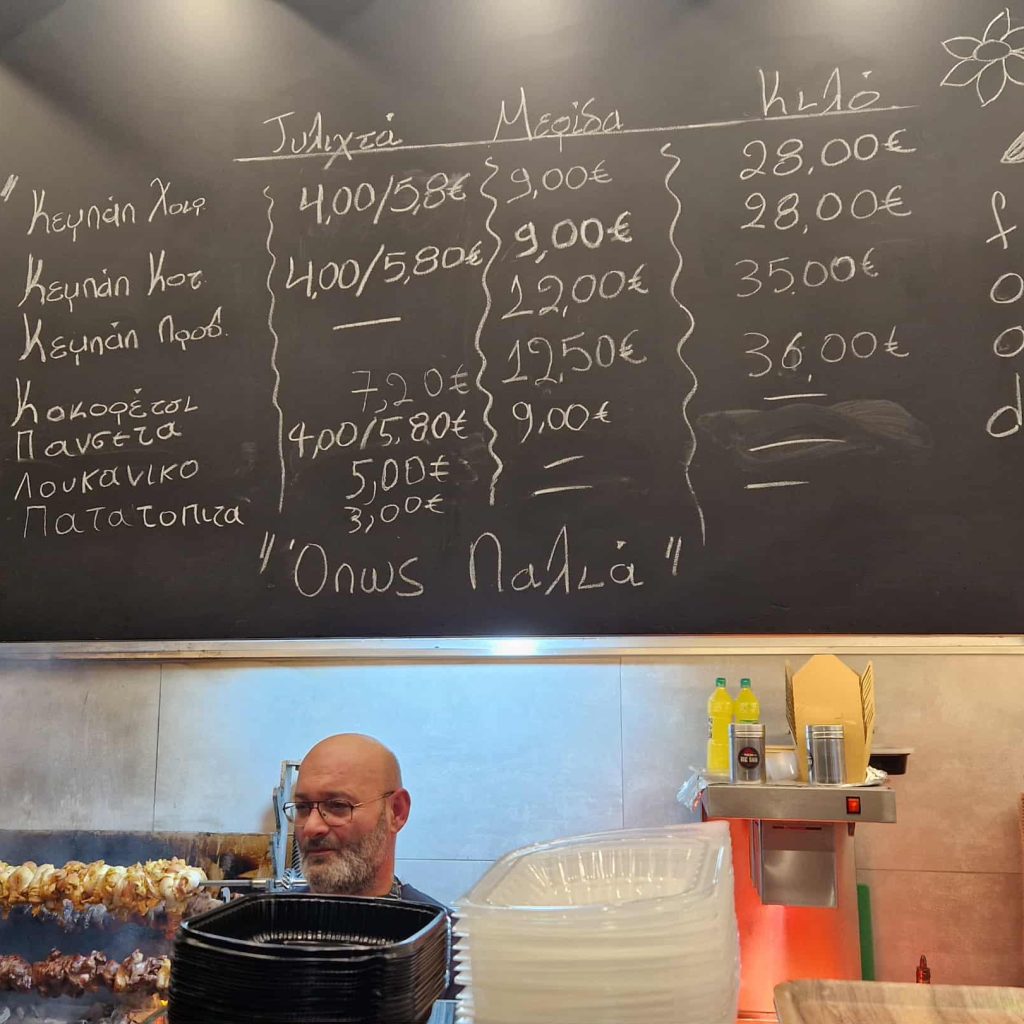 Τυλιχτά Μερίδα Κιλό
"Κεμπάπ Χοιρ. 4,00/5,8€ 9,00€ 28,00€
Κεμπάπ Κοτ. 4,00/5,80€ 9,00€ 28,00€
Κεμπάπ Προβ. — 12,00€ 35.00€
Κοκορέτσι 7,20€ 12,50€ 36,00€
Πανσέτα 4,00/5,80€ 9,00€ —
Λουκάνικο 5,00€ — —
Πατατοπιτα 3,00€ — —
"Όπως Παλιά"
f
o
o
d